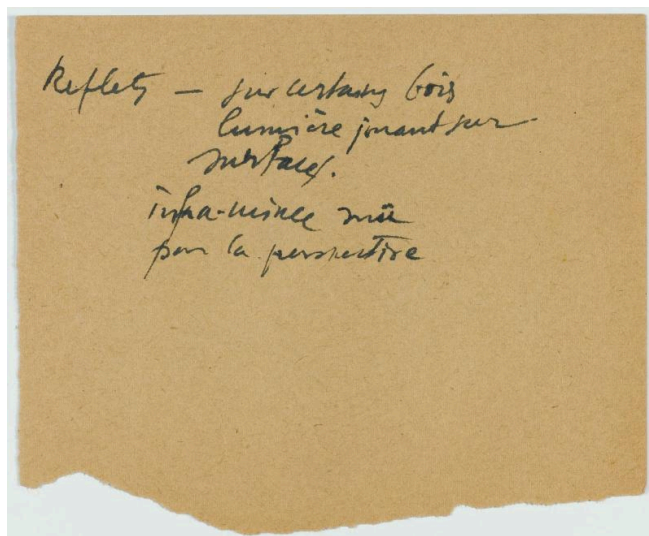 Reflets — sur certains bois
lumière jouant sur
surfaces.
infra-mince
par la perspective